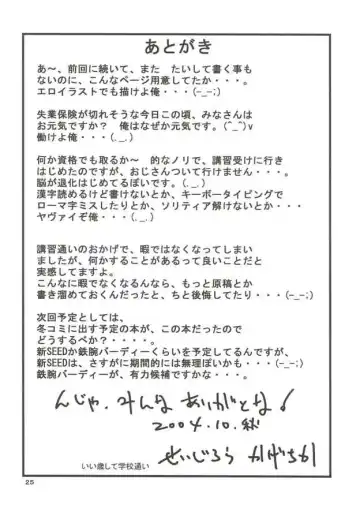 あとがき
あ～、前回に続いて、また　たいして書く事も
ないのに、こんなページ用意してたか・・・。
エロイラストでも描けよ俺・・・(-_-;)
失業保険が切れそうな今日この頃、みなさんは
お元気ですか？　俺はなぜか元気です。(^_^)v
働けよ俺・・・(._.)
何か資格でも取るか～　的なノリで、講習受けに行き
はじめたのですが、おじさんついて行けません・・・。
脳が退化はじめてるぽいです。(._.)
漢字読めるけど書けないとか、キーボータイピングで
ローマ字ミスしたりとか、ソリティア解けないとか・・・
ヤヴァイぞ俺・・・(._.)
講習通いのおかげで、暇ではなくなってしまい
ましたが、何かすることがあるって良いことだと
実感してますよ。
こんなに暇でなくなるんなら、もっと原稿とか
書き溜めておくんだったと、ちと後悔してたり・・・(-_-;)
次回予定としては、
冬コミに出す予定の本が、この本だったので
どうするべか？・・・。
新SEEDか鉄腕バーディーくらいを予定してるんですが、
新SEEDは、さすがに期間的には無理ぽいかも・・・(-_-;)
鉄腕バーディーが、有力候補ですかな・・・。
んじゃ、みんな ありがとな！
2004.10.秋
せいじろう かげちか
いい歳して学校通い
25